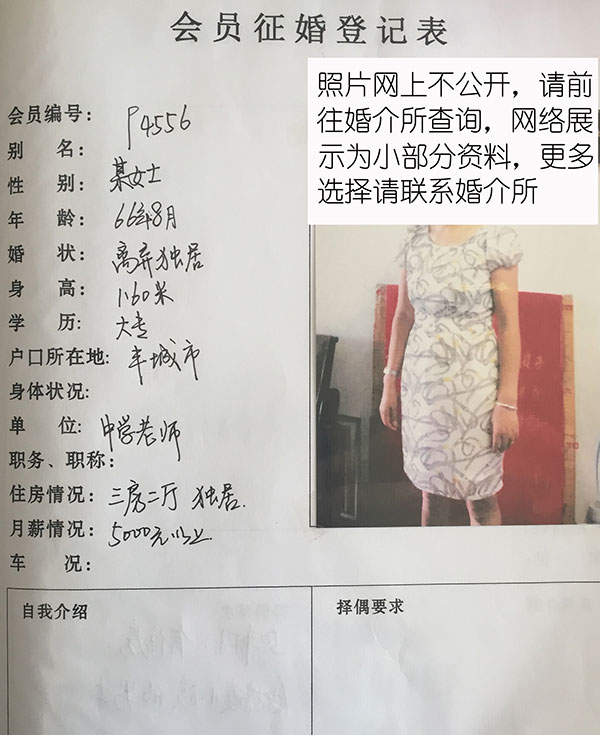 会员征婚登记表
照片网上不公开，请前
往婚介所查询，网络展
示为小部分资料，更多
选择请联系婚介所
会员编号：P4556
别 名：
性 别：某女士
年 龄：66年8月
婚 状：离弃独居
身 高：1.60米
学 历：大专
户口所在地：丰城市
身体状况：
单 位：中学老师
职务、职称：
住房情况：三房二厅 独居.
月薪情况：5000元以上
车 况：
自我介绍
择偶要求